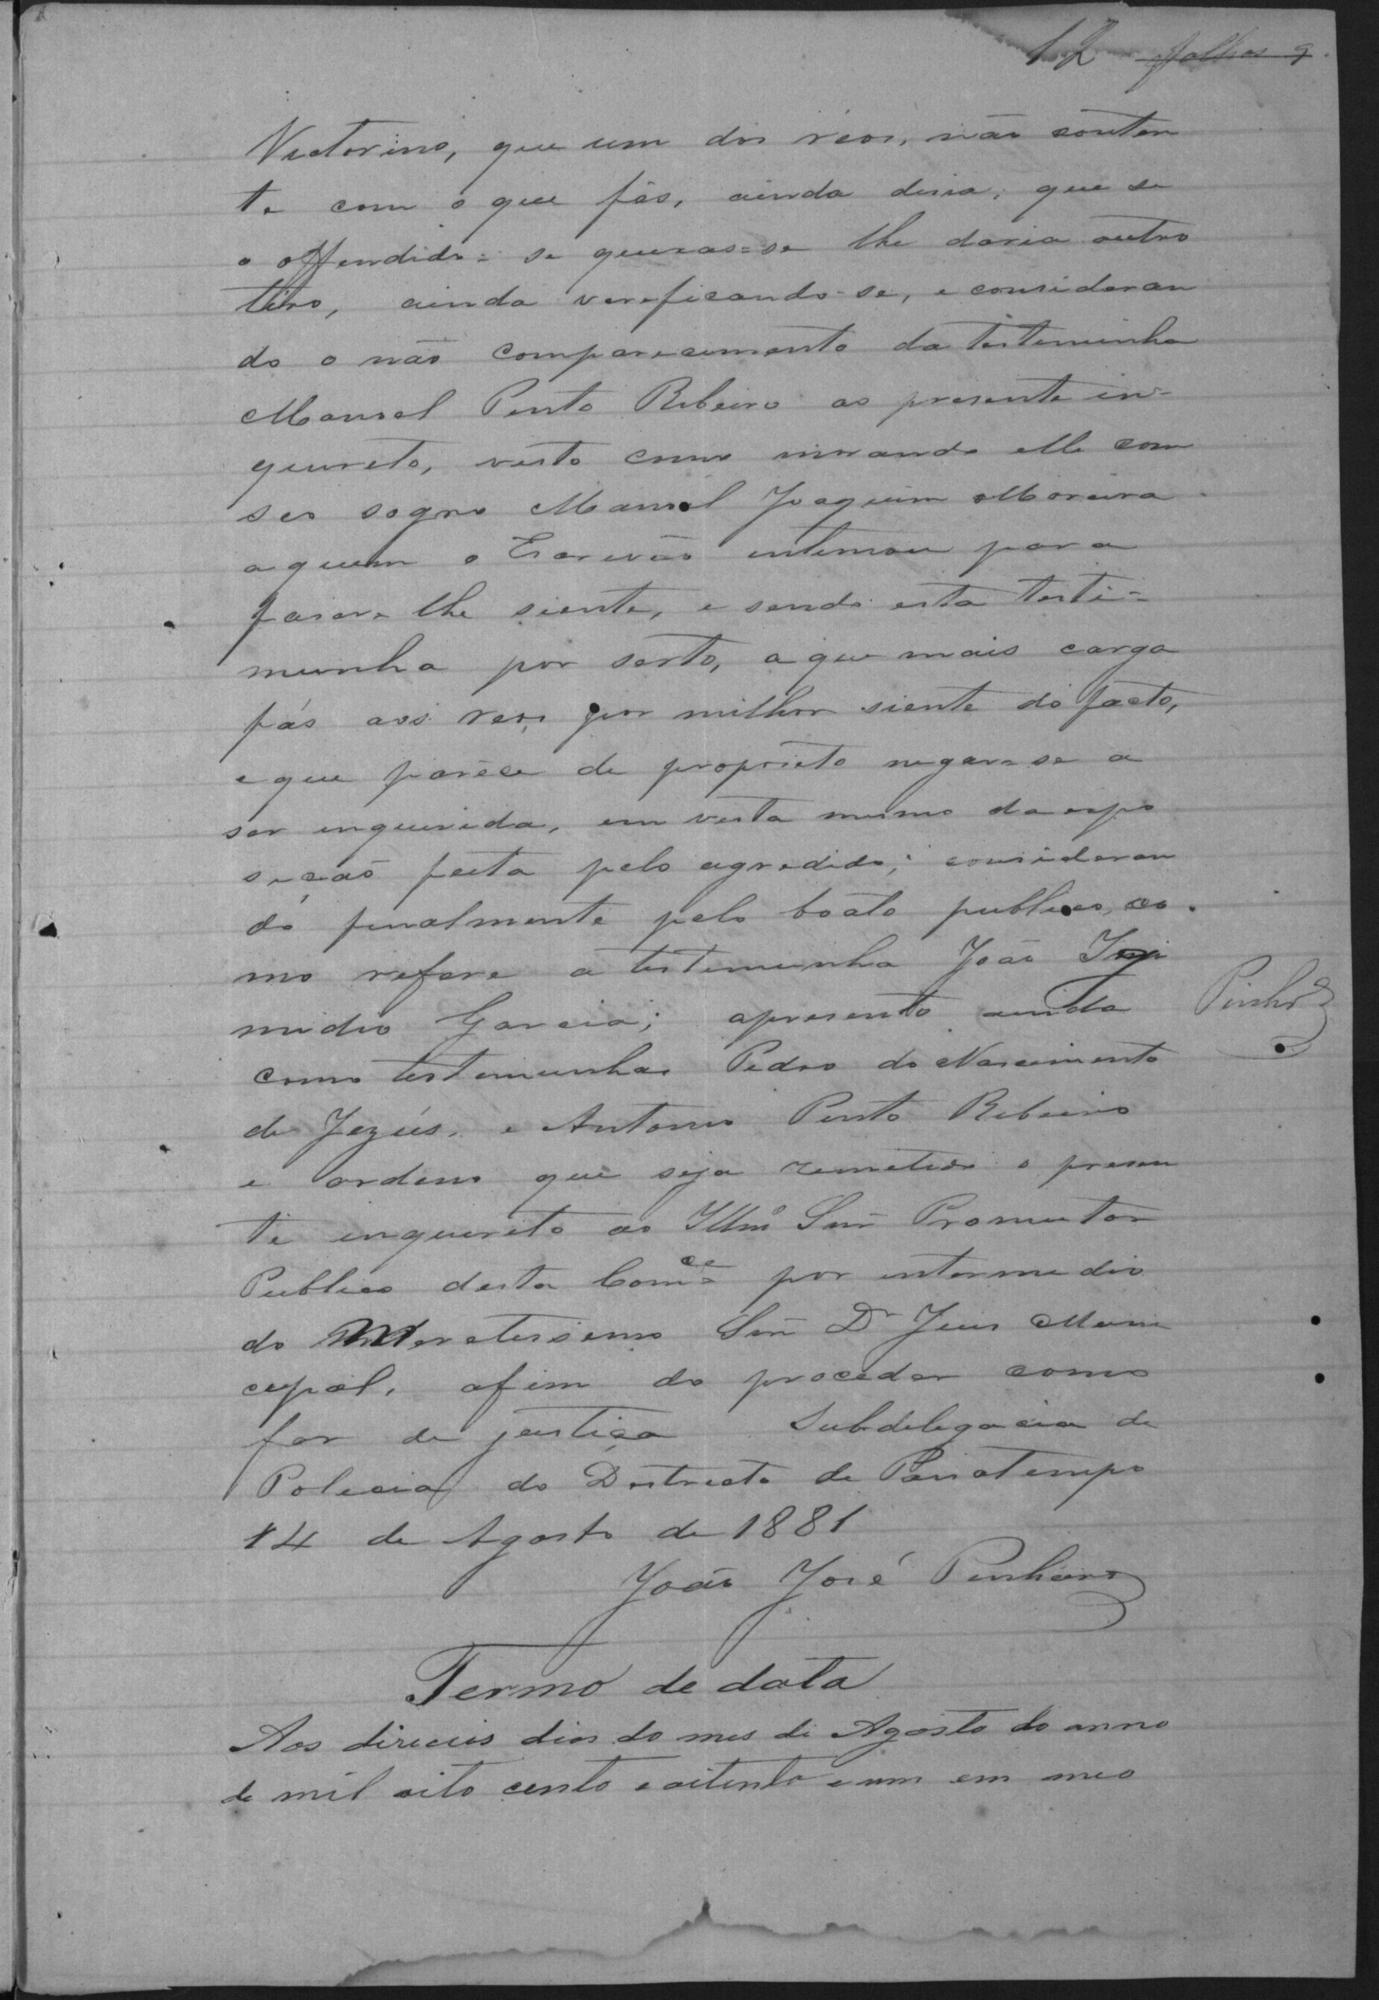 12 folhas 9.
Victorino, que um dos réos, não conten
te com o que fás, ainda disia, que se
o offendido = se queixas=se lhe daria outro
tiro, ainda verificando-se, e consideran
do o não comparecimento da testeminha
Manoel Pinto Ribeiro ao presente in-
querito, visto como morando elle com
seo sogro Manoel Joaquim Moreira
a quem o Escrivão intimou para
faser-lhe siente, e sendo esta testi=
munha por serto, a que mais carga
fás aos reos, por milhor siente do facto,
e que paréce de proposito negar-se a
ser enquerida, em vista mesmo da expo
sição feita pelo agredido; consideran
do finalmente pelo boato publico, co
mo refere a testemunha João
midio Garcia; apresento ainda
como testemunhas Pedro do Nascimento
de Jezús, e Antonio Pinto Ribeiro
e ordeno que seja remetido o presen
te inquerito ao Illmº Snr Promutor
Publico desta Comca por intermedio
do Meretissimo Snr Dr Juis Muni
cipal, afim de proceder como
for de justiça Subdelegacia de
Policia do Destricto de Passatempo
14 de Agosto de 1881
João José Pinheiro
Pinhro
Termo de data
Aos diseceis dias do mes de Agosto do anno
de mil oito cento e oitenta e um em meo